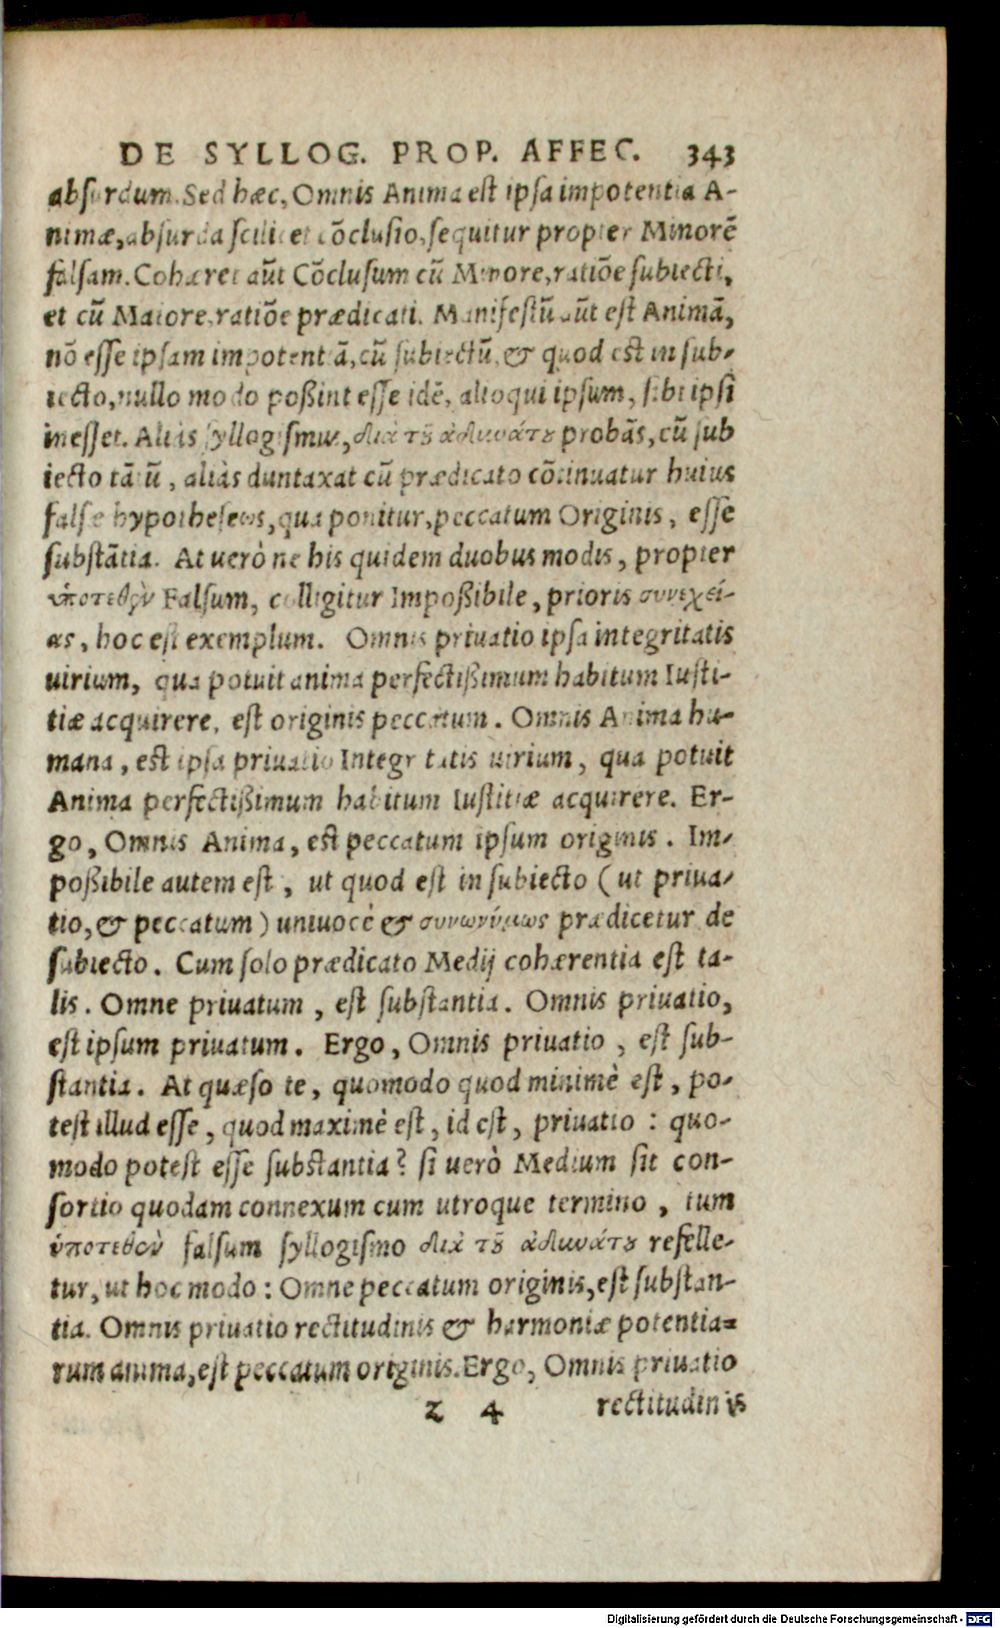 DE SYLLOG. PROP. AFFEC. 343
absurdum. Sed hæc, Omnis Anima est ipsa impotentia A-
nimæ, absurda scilicet cõclusio, sequitur propter Minorẽ
falsam. Cohæret aũt Cõclusum cũ Minore, ratiõe subiecti,
et cũ Maiore, ratiõe prædicati. Manifestũ aũt est Animã,
nõ esse ipsam impotentiã, cũ subiectũ, & quod est in sub-
iecto, nullo modo poßint esse idẽ, alioqui ipsum, sibi ipsi
inesset. Aliàs syllogismus, διὰ τοῦ ἀδυνάτου probãs, cũ sub
iecto tãtũ, aliàs duntaxat cũ prædicato cõtinuatur huius
falsæ hypotheseos, qua ponitur, peccatum Originis, esse
substãtia. At uerò ne his quidem duobus modis, propter
ὑποτεθὲν Falsum, colligitur Impoßibile, prioris συνεχεί-
ας, hoc est exemplum. Omnis priuatio ipsa integritatis
uirium, qua potuit anima perfectißimum habitum Iusti-
tiæ acquirere, est originis peccatum. Omnis Anima hu-
mana, est ipsa priuatio Integritatis uirium, qua potuit
Anima perfectißimum habitum Iustitiæ acquirere. Er-
go, Omnis Anima, est peccatum ipsum originis. Im-
poßibile autem est, ut quod est in subiecto (ut priua-
tio, & peccatum) uniuocè & συνωνύμως prædicetur de
subiecto. Cum solo prædicato Medij cohærentia est ta-
lis. Omne priuatum, est substantia. Omnis priuatio,
est ipsum priuatum. Ergo, Omnis priuatio, est sub-
stantia. At quæso te, quomodo quod minimè est, po-
test illud esse, quod maximè est, id est, priuatio: quo-
modo potest esse substantia? si uerò Medium sit con-
sortio quodam connexum cum utroque termino, tum
ὑποτεθὲν falsum syllogismo διὰ τοῦ ἀδυνάτου refelle-
tur, ut hoc modo: Omne peccatum originis, est substan-
tia. Omnis priuatio rectitudinis & harmoniæ potentia-
rum animæ, est peccatum originis. Ergo, Omnis priuatio
Z 4 rectitudinis
Digitalisierung gefördert durch die Deutsche Forschungsgemeinschaft - DFG